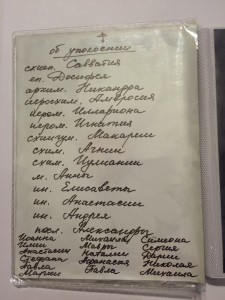 об упокоении
схиеп. Савватия
еп. Досифея
архим. Никандра
иеросхим. Амвросия
иером. Иллариона
иером. Игнатия
схиигум. Макарии
схим. Агнии
схим. Иулиании
м. Анны
ин. Елисаветы
ин. Анастасии
ин. Андрея
посл. Александры
Иоанна Михаила Симеона
Илии Сергия
Анастасии Наталии Дарии
Стефана Афанасия Николая
Павла Павла Михаила
Марии